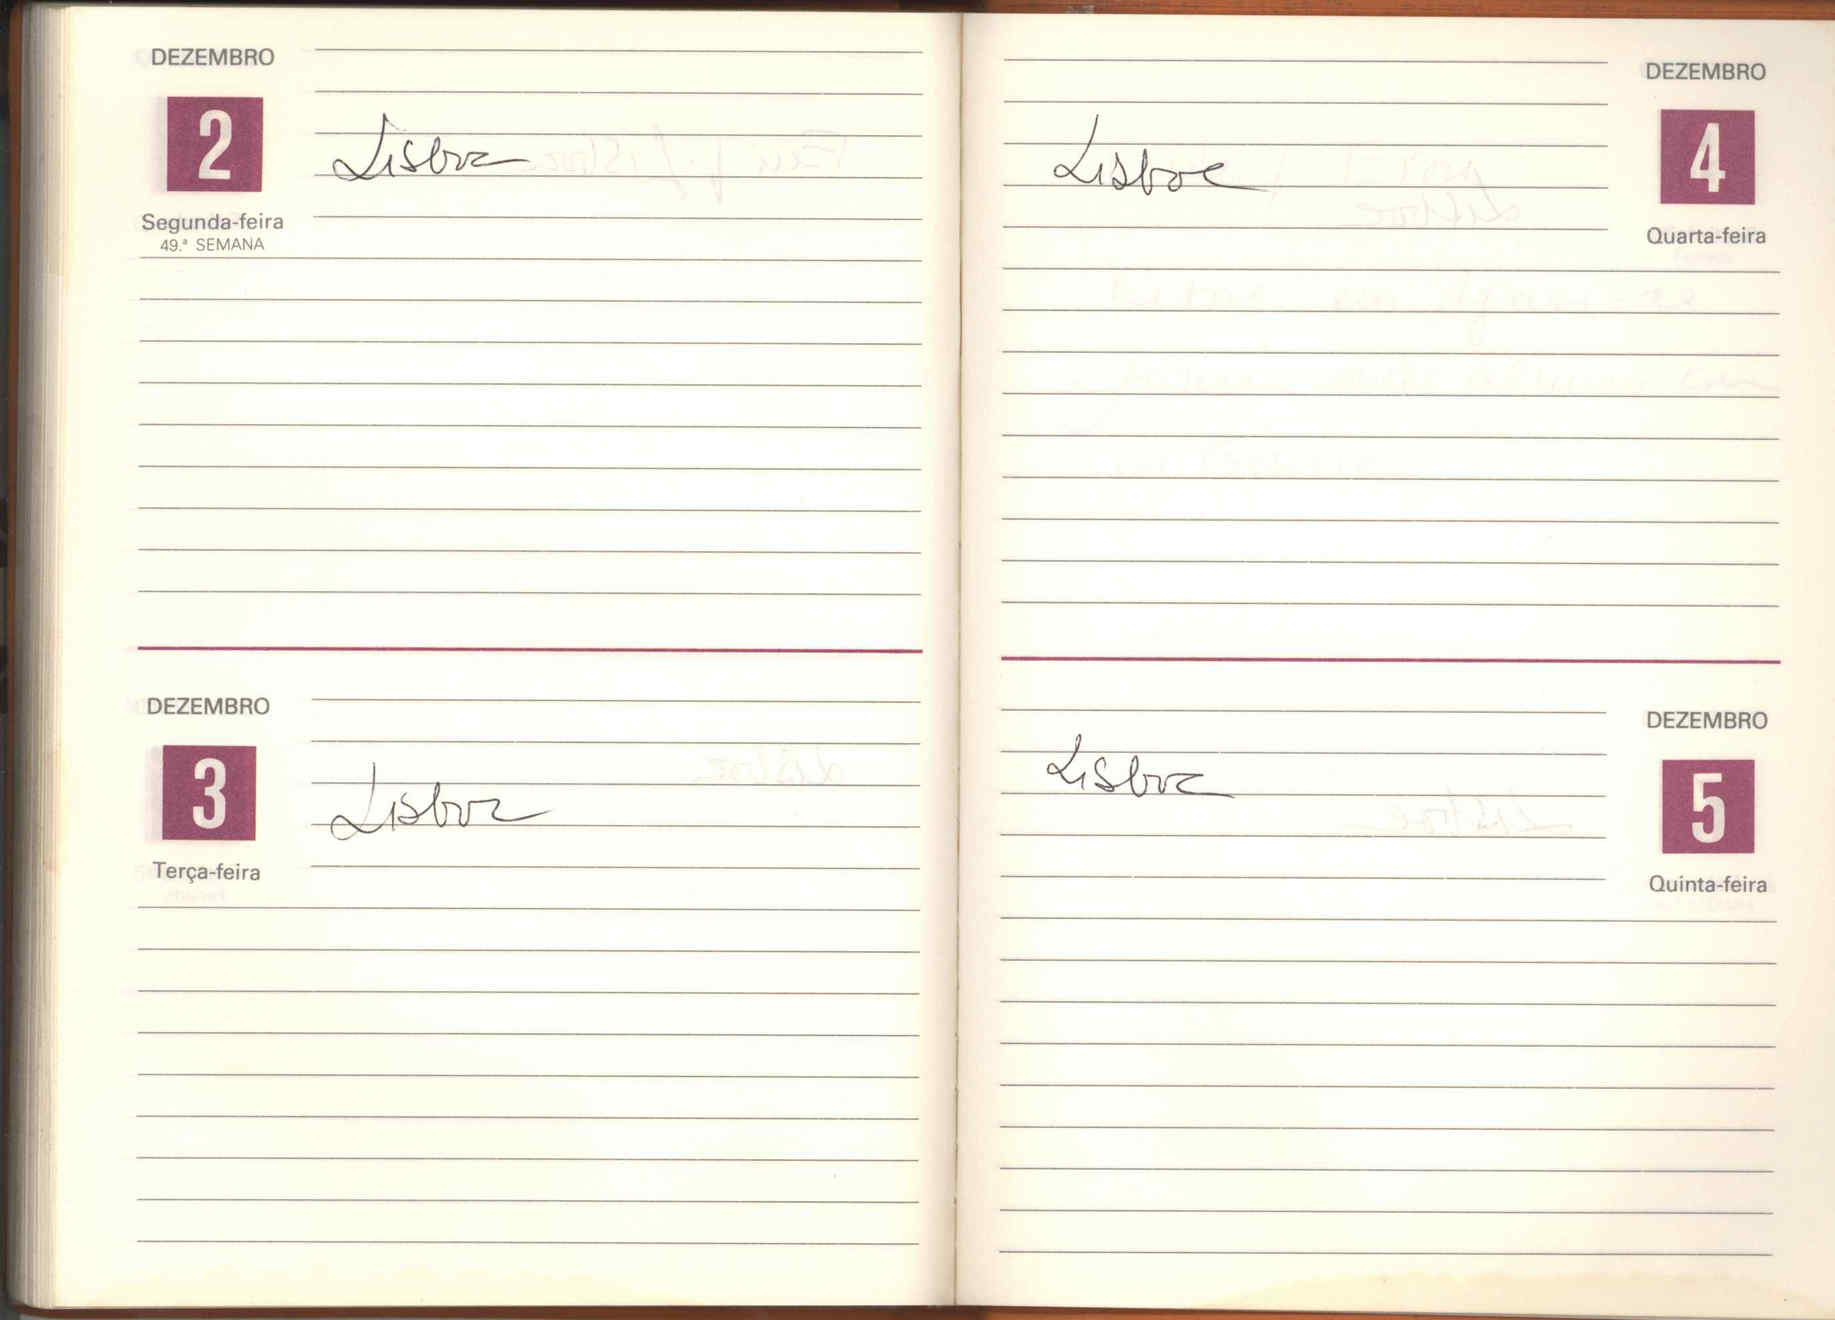 DEZEMBRO
2
Segunda-feira
49.ª SEMANA
Lisboa
DEZEMBRO
3
Terça-feira
Lisboa
DEZEMBRO
4
Quarta-feira
Lisboa
DEZEMBRO
5
Quinta-feira
Lisboa